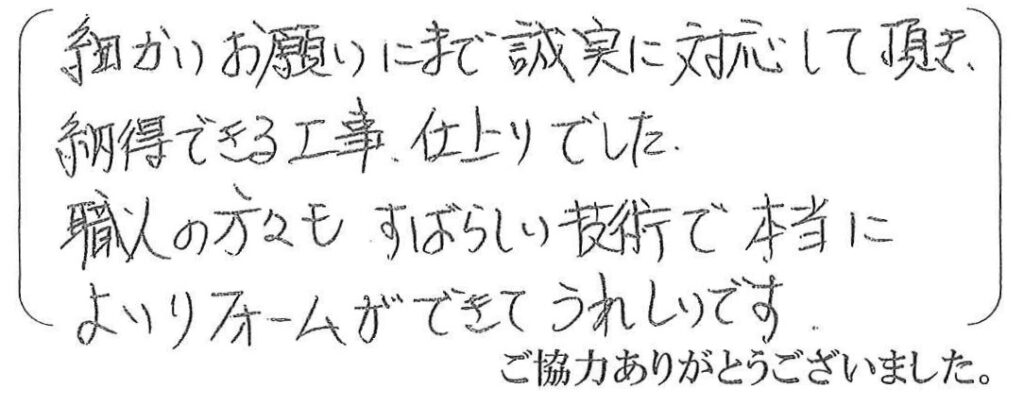 細かいお願いにまで誠実に対応して頂き、
納得できる工事、仕上りでした。
職人の方々もすばらしい技術で本当に
よいリフォームができてうれしいです.
ご協力ありがとうございました。